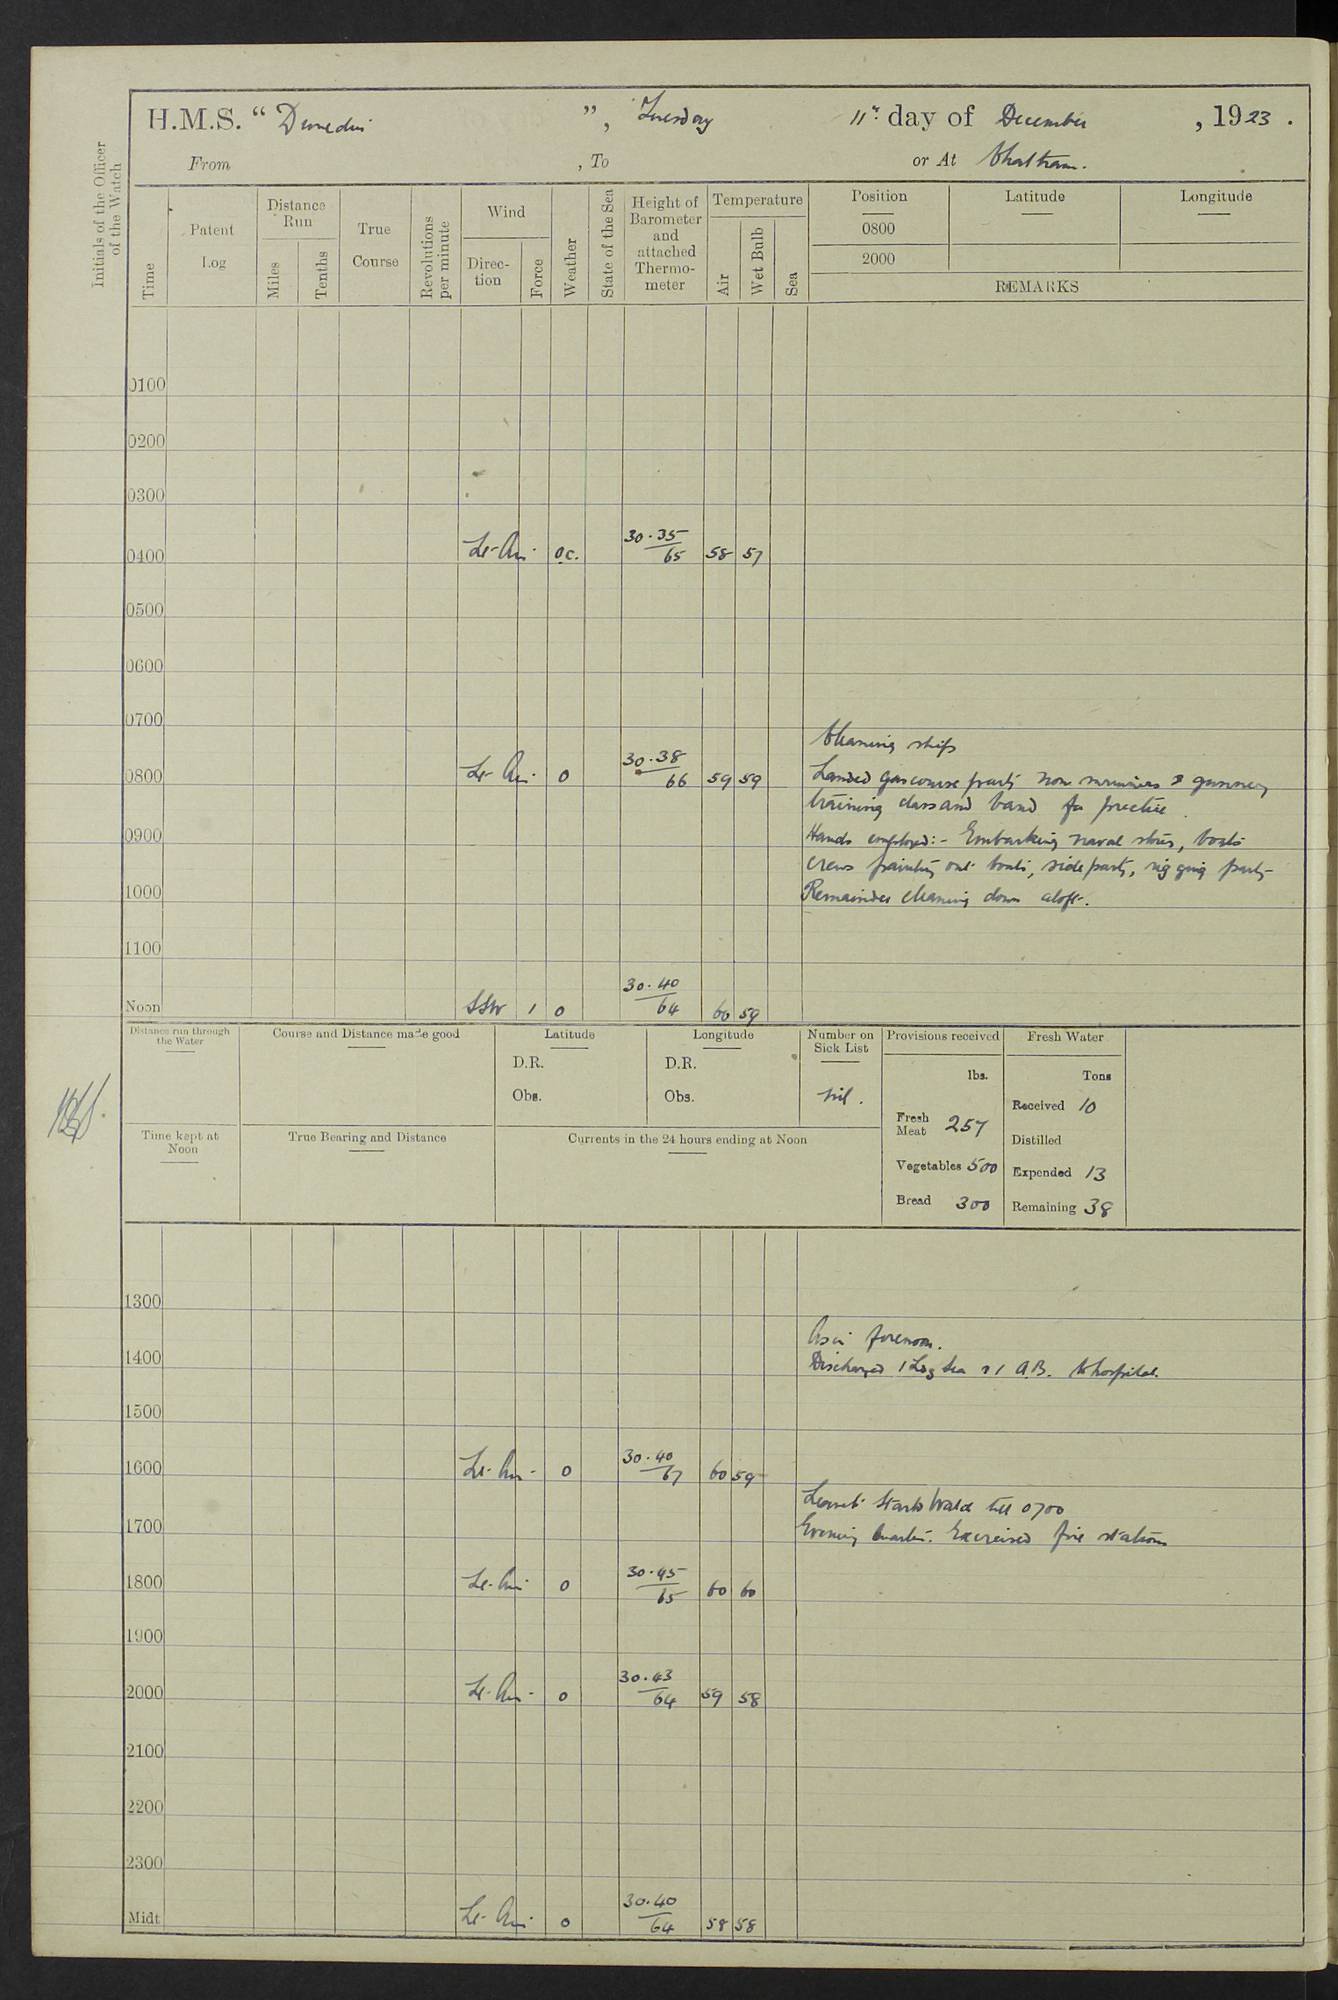 H.M.S. " Dunedin ", Tuesday 11th day of December, 1923.
From , To or At Chatham.
Initials of the Officer of the Watch
Time
Patent Log
Distance Run
Miles
Tenths
True Course
Revolutions per minute
Wind
Direction
Force
Weather
State of the Sea
Height of Barometer and attached Thermometer
Temperature
Air
Wet Bulb
Sea
Position Latitude Longitude
0800
2000
REMARKS
0100
0200
0300
0400 Lt. Air. o.c. 30.35/65 58 57
0500
0600
0700
Cleaning ship
0800 Lt. Air. o 30.38/66 59 59
Landed gas course party non swimmers & gunnery
training class and band for practice.
0900
Hands employed:- Embarking naval stores, boats
crews painting out boats, side party, rigging party
1000
Remainder cleaning down aloft.
1100
Noon SSW 1 o 30.40/64 60 59
Distance run through the Water
Course and Distance made good
Latitude
D.R.
Obs.
Longitude
D.R.
Obs.
Number on Sick List
nil.
Provisions received
lbs.
Fresh Meat 257
Vegetables 500
Bread 300
Fresh Water
Tons
Received 10
Distilled
Expended 13
Remaining 38
Time kept at Noon
True Bearing and Distance
Currents in the 24 hours ending at Noon
1300
As in forenoon.
1400
Discharged 1 Ldg Sea & 1 A.B. to hospital.
1500
1600 Lt. Air. o 30.40/67 60 59
Leave to Starbd Watch till 0700
1700
Evening Quarters. Exercised fire stations
1800 Lt. Air o 30.45/65 60 60
1900
2000 Lt. Air. o 30.43/64 59 58
2100
2200
2300
Midt Lt. Air. o 30.40/64 58 58